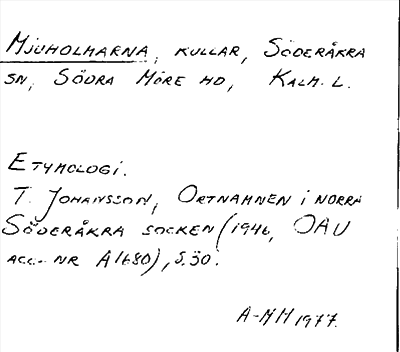 Mjuholmarna, kullar, Söderåkra
sn, Södra Möre hd, Kalm. L.
Etymologi.
T. Johansson, Ortnamnen i norra
Söderåkra socken (1946, OAU
acc.- nr A1680), s. 30.
A-MH 1977.